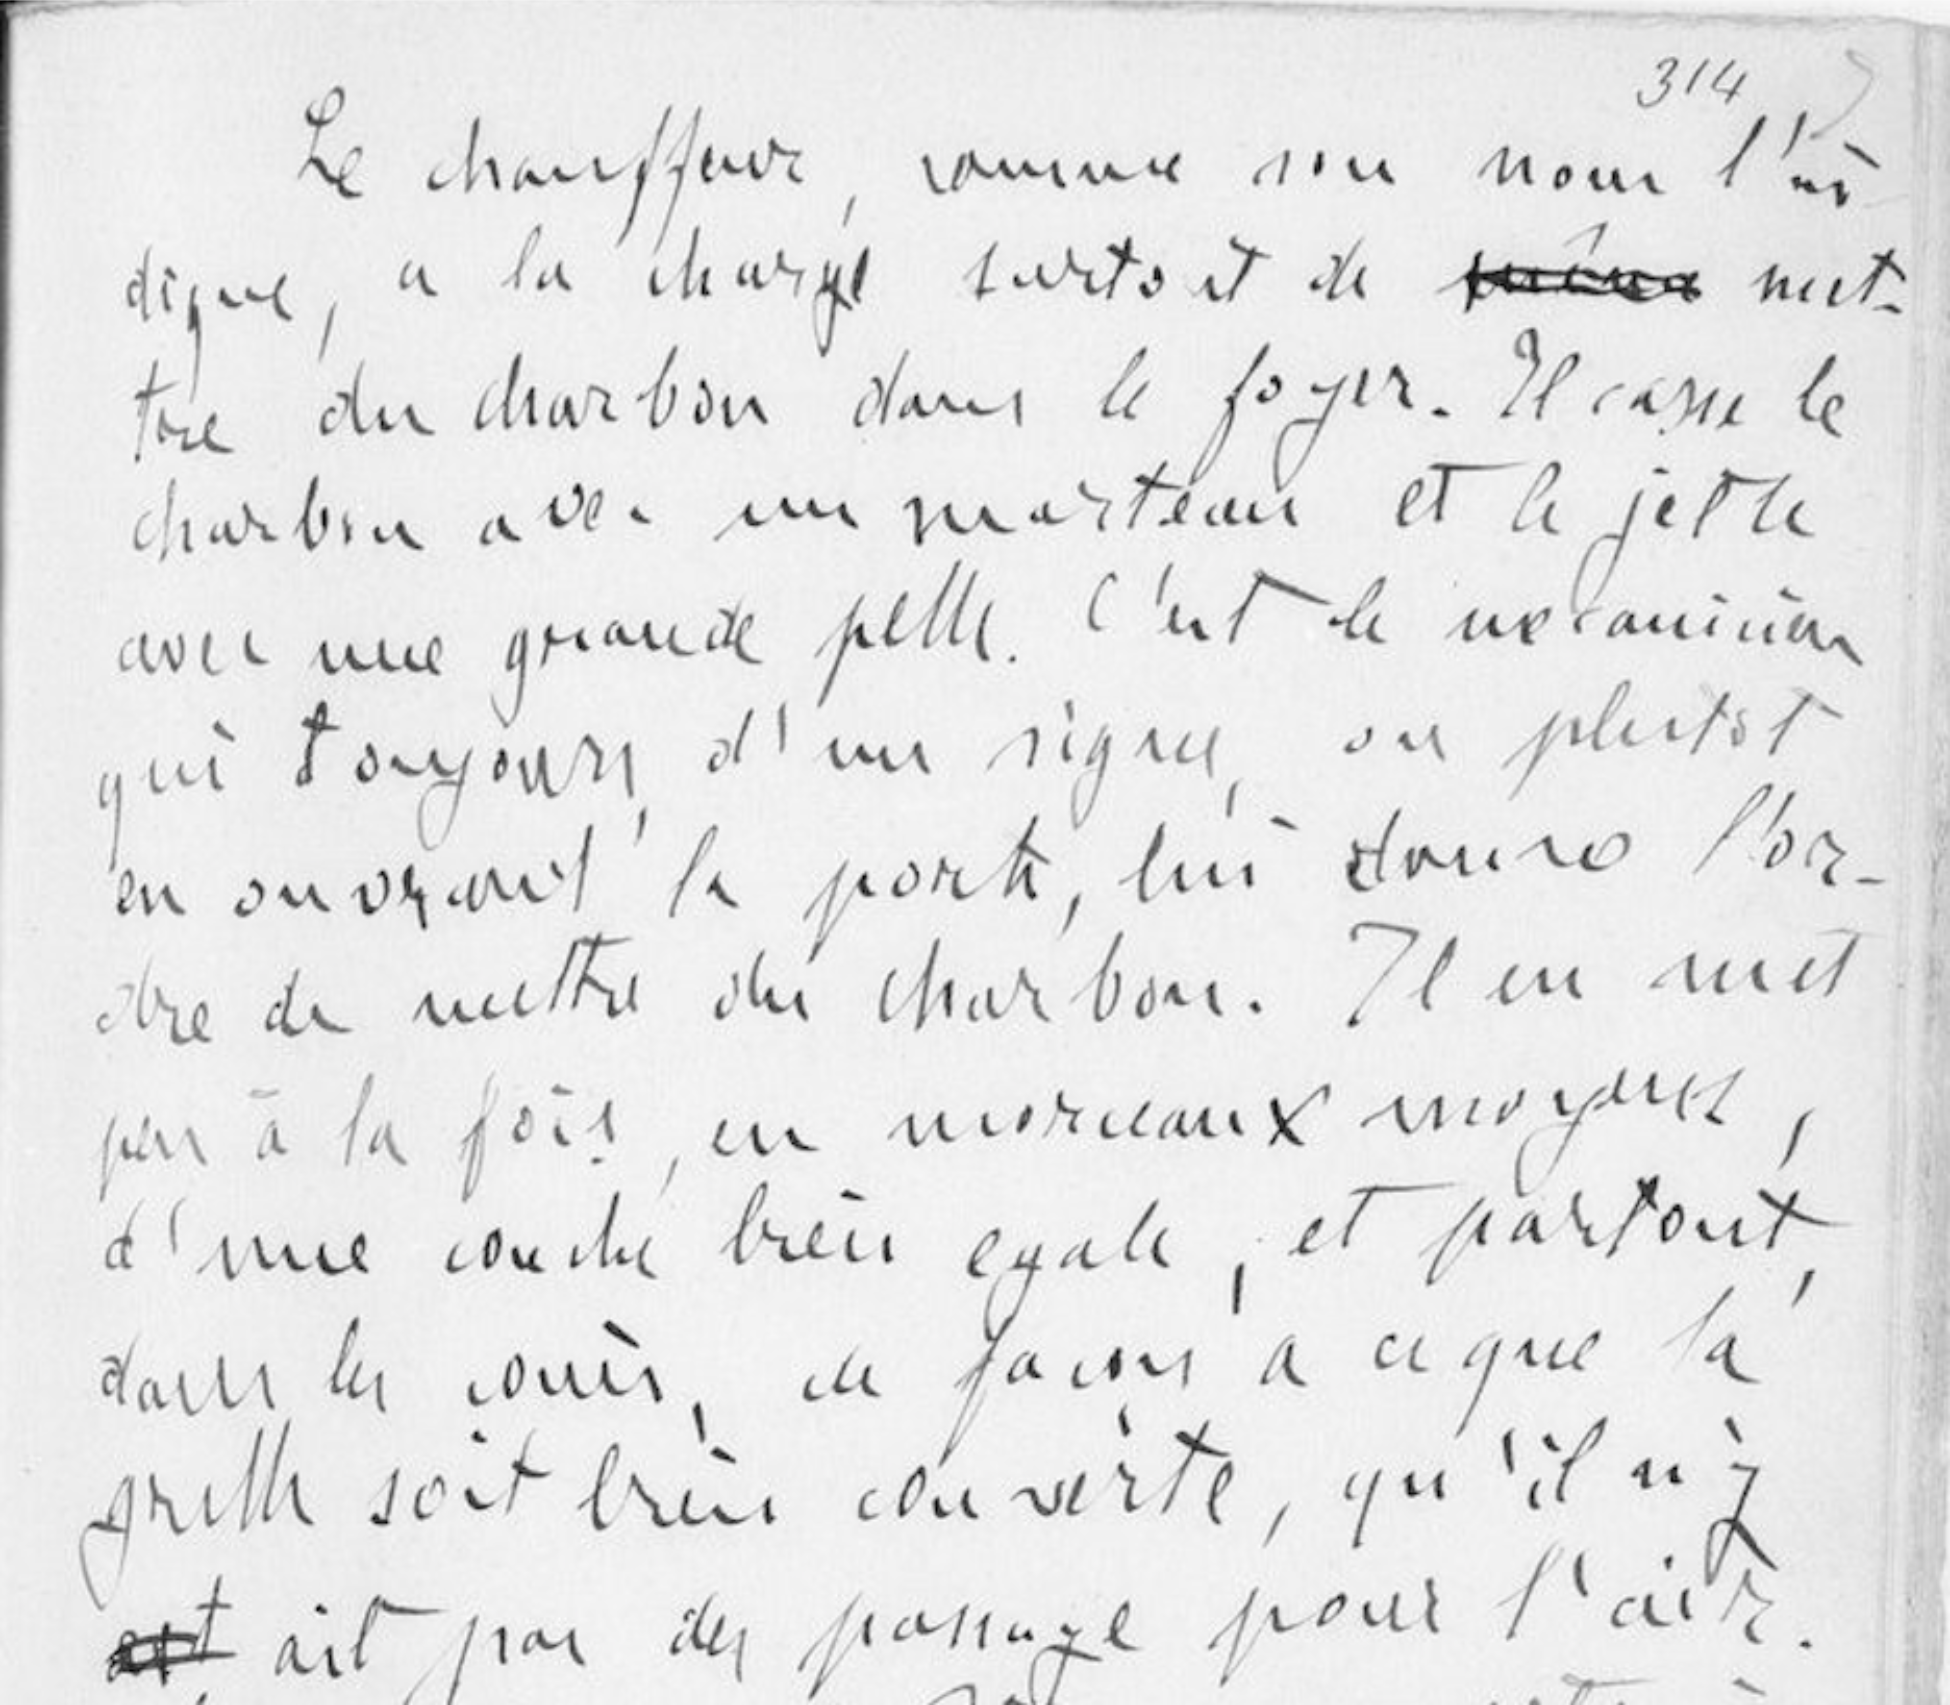 314
Le chauffeur, comme son nom l'in-
dique, a la charge surtout de met-
tre du charbon dans le foyer. Il casse le
charbon avec un marteau et le jette
avec une grande pelle. C'est le mecanicien
qui toujours, d'un signe, ou plutot
en ouvrant la porte, lui donne l'or-
dre de mettre du charbon. Il en met
peu à la fois, en morceaux moyens,
d'une couche bien egale, et partout,
dans les coins, de facon a ce que la
grille soit bien couverte, qu'il n'y
ait pas des passage pour l'air.